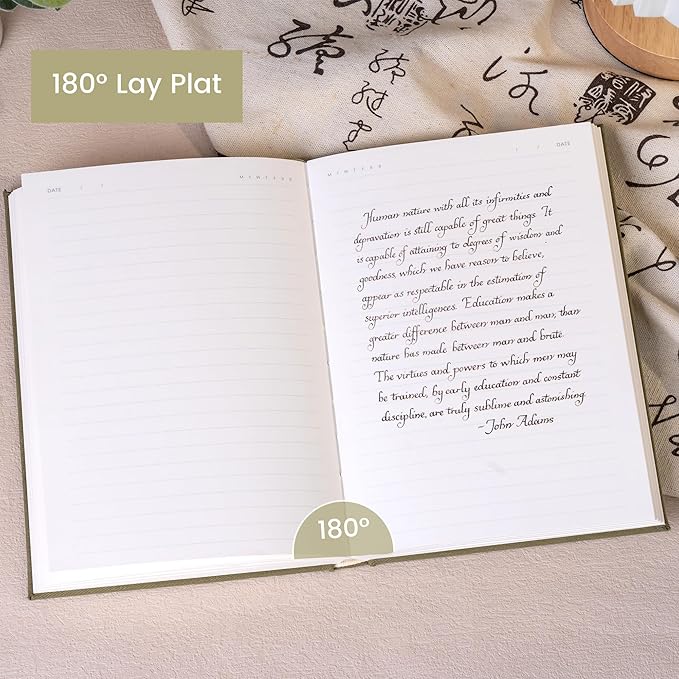 180° Lay Plat
DATE / /
M T W T F S S
M T W T F S S
/ / DATE
Human nature with all its infirmities and
depravation is still capable of great things. It
is capable of attaining to degrees of wisdom and
goodness, which we have reason to believe,
appear as respectable in the estimation of
superior intelligences. Education makes a
greater difference between man and man, than
nature has made between man and brute.
The virtues and powers to which men may
be trained, by early education and constant
discipline, are truly sublime and astonishing.
–John Adams
180°